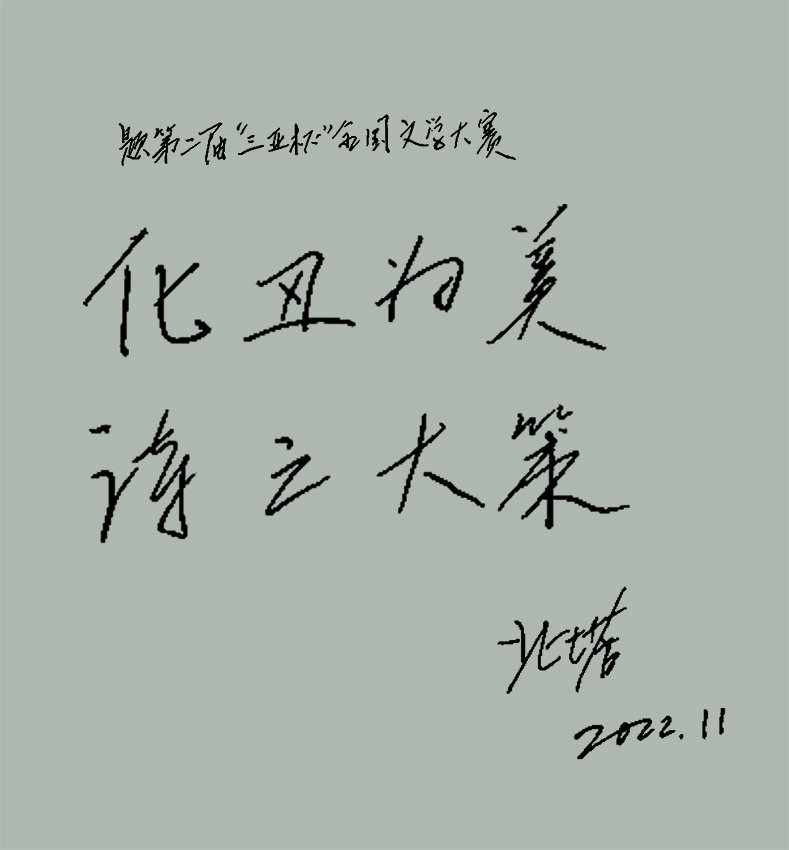 题第二届“三亚杯”全国文学大赛
化丑为美
诗之大策
北塔
2022.11